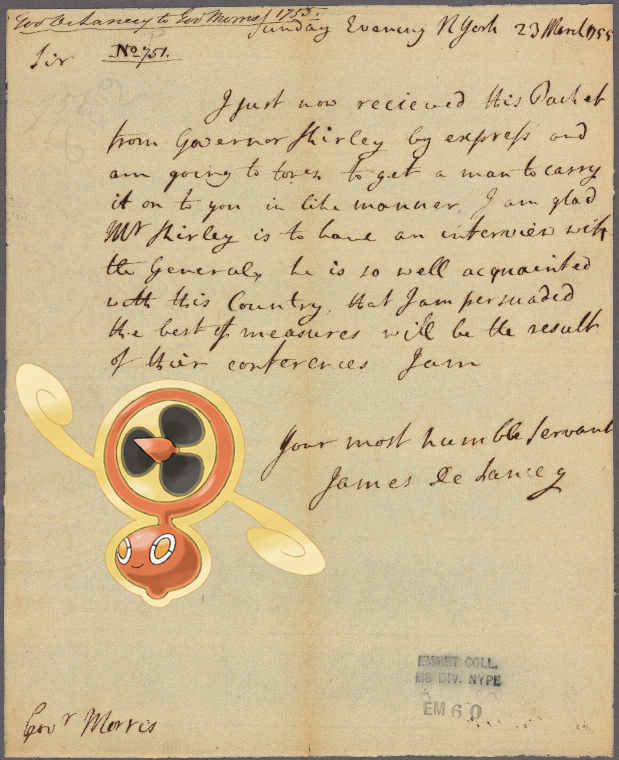 Gov DeLancey to Gov Morris 1755.
Sunday Evening N York 23 March 1755
Sir
No 751.
I just now recieved this Packet
from Governor Shirley by express and
am going to town to get a man to carry
it on to you in like manner, I am glad
Mr Shirley is to have an interview with
the General, he is so well acquainted
with this Country, that I am persuaded
the best of measures will be the result
of thier conferences I am
Your most humble Servant
James De Lancey
EMMET COLL.
MS DIV. NYPL
EM 60
Govr Morris